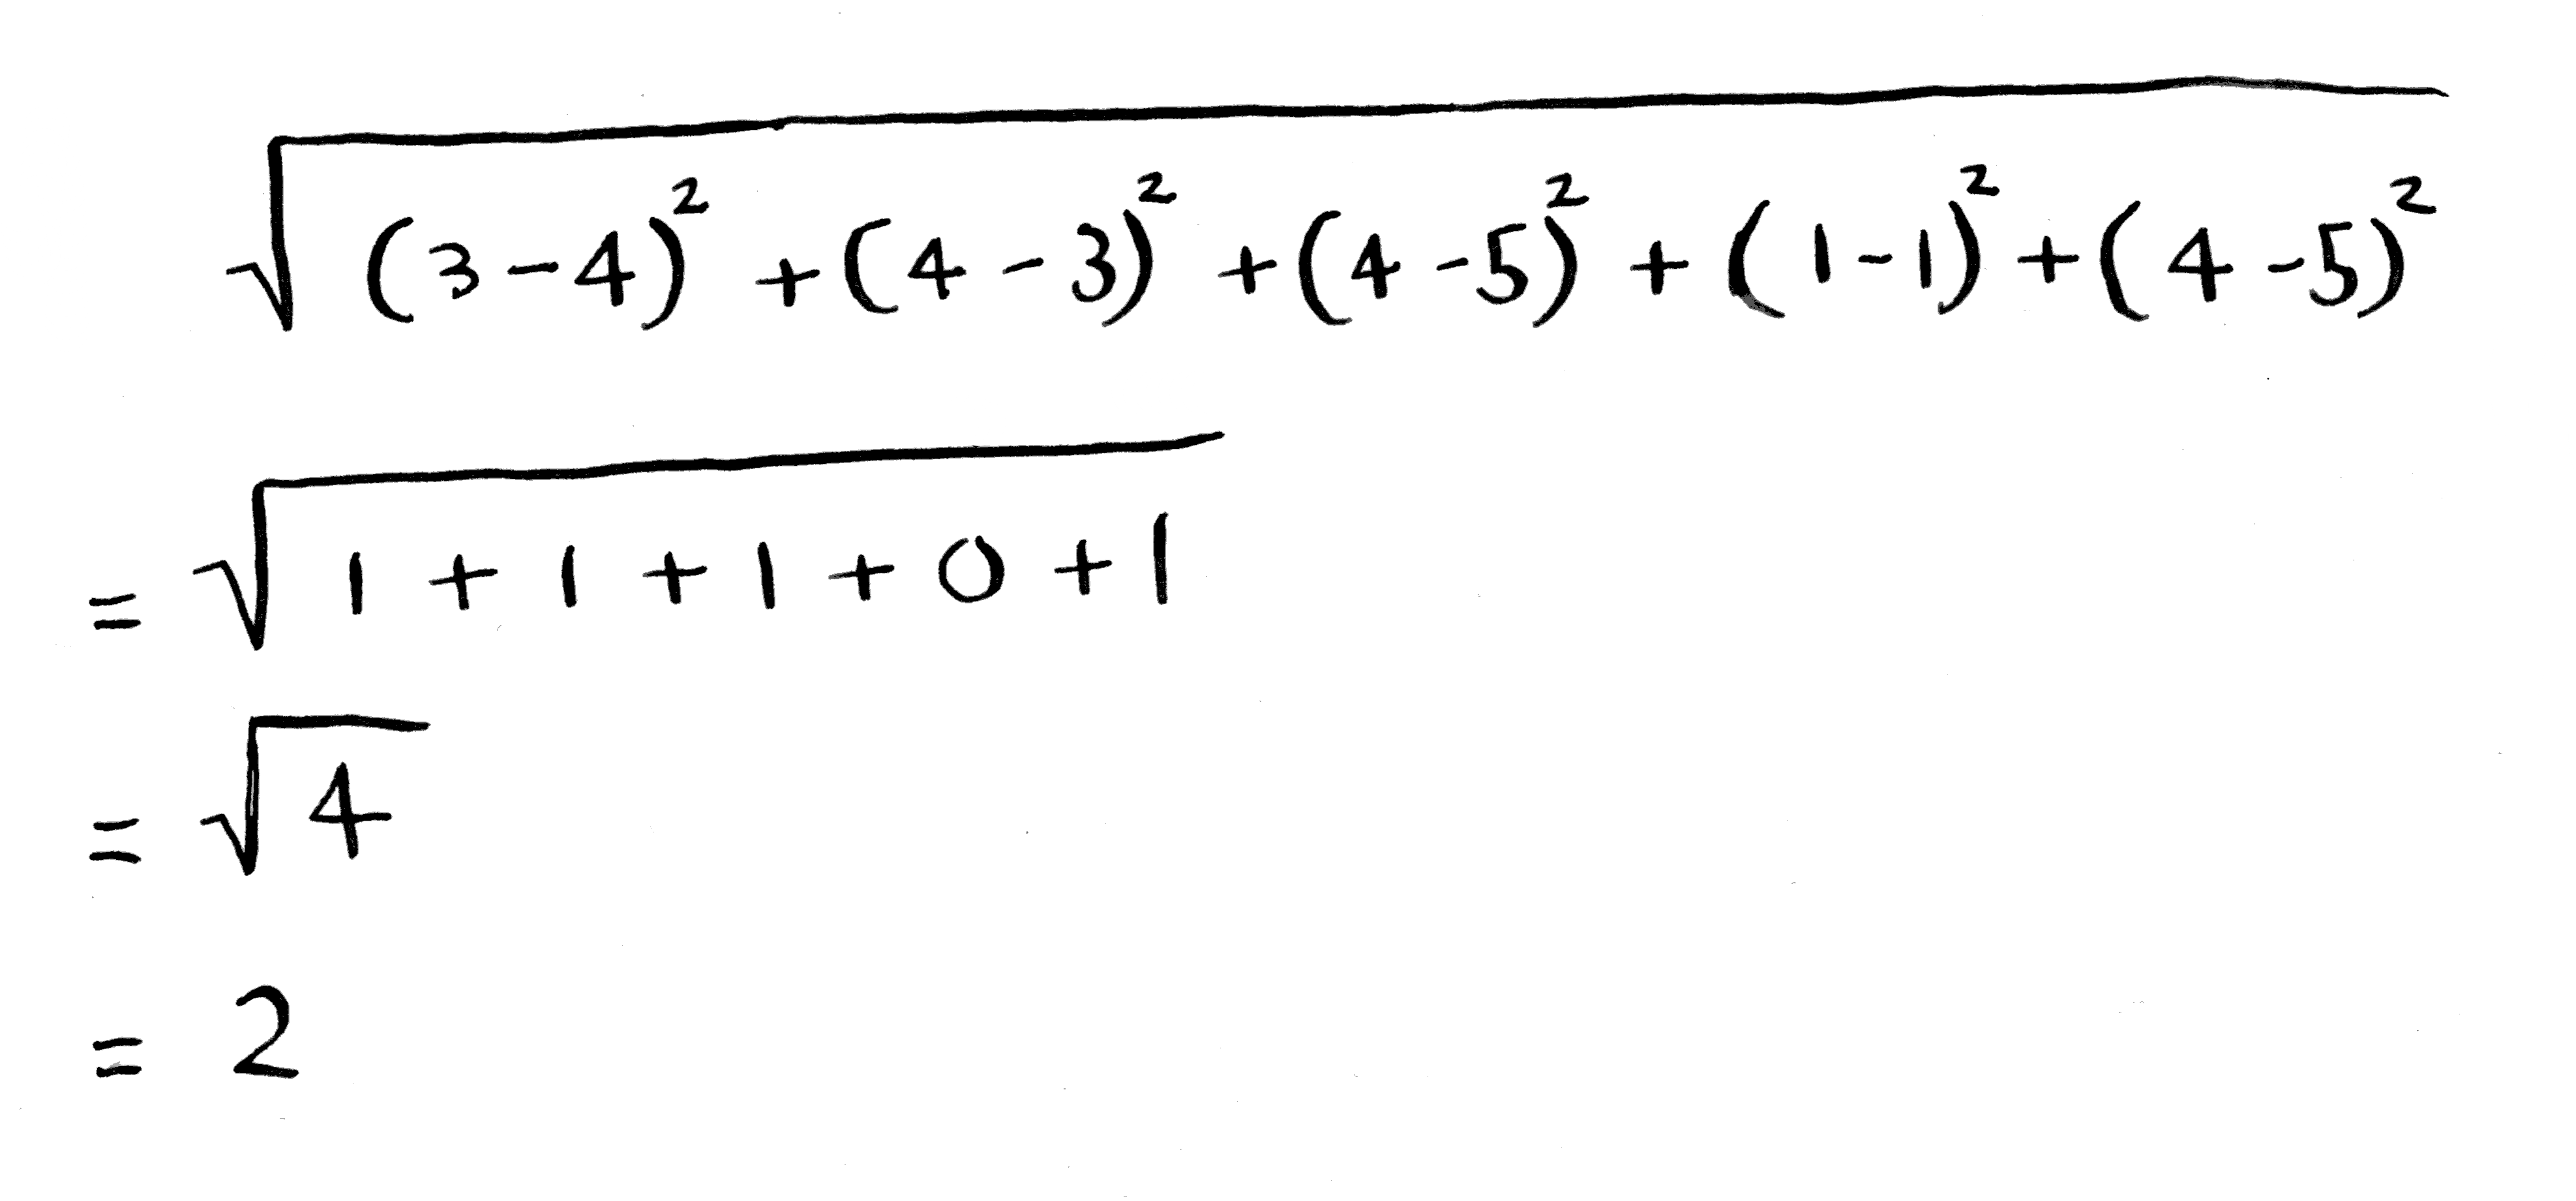 √((3-4)² + (4-3)² + (4-5)² + (1-1)² + (4-5)²)
= √(1+1+1+0+1)
= √4
= 2